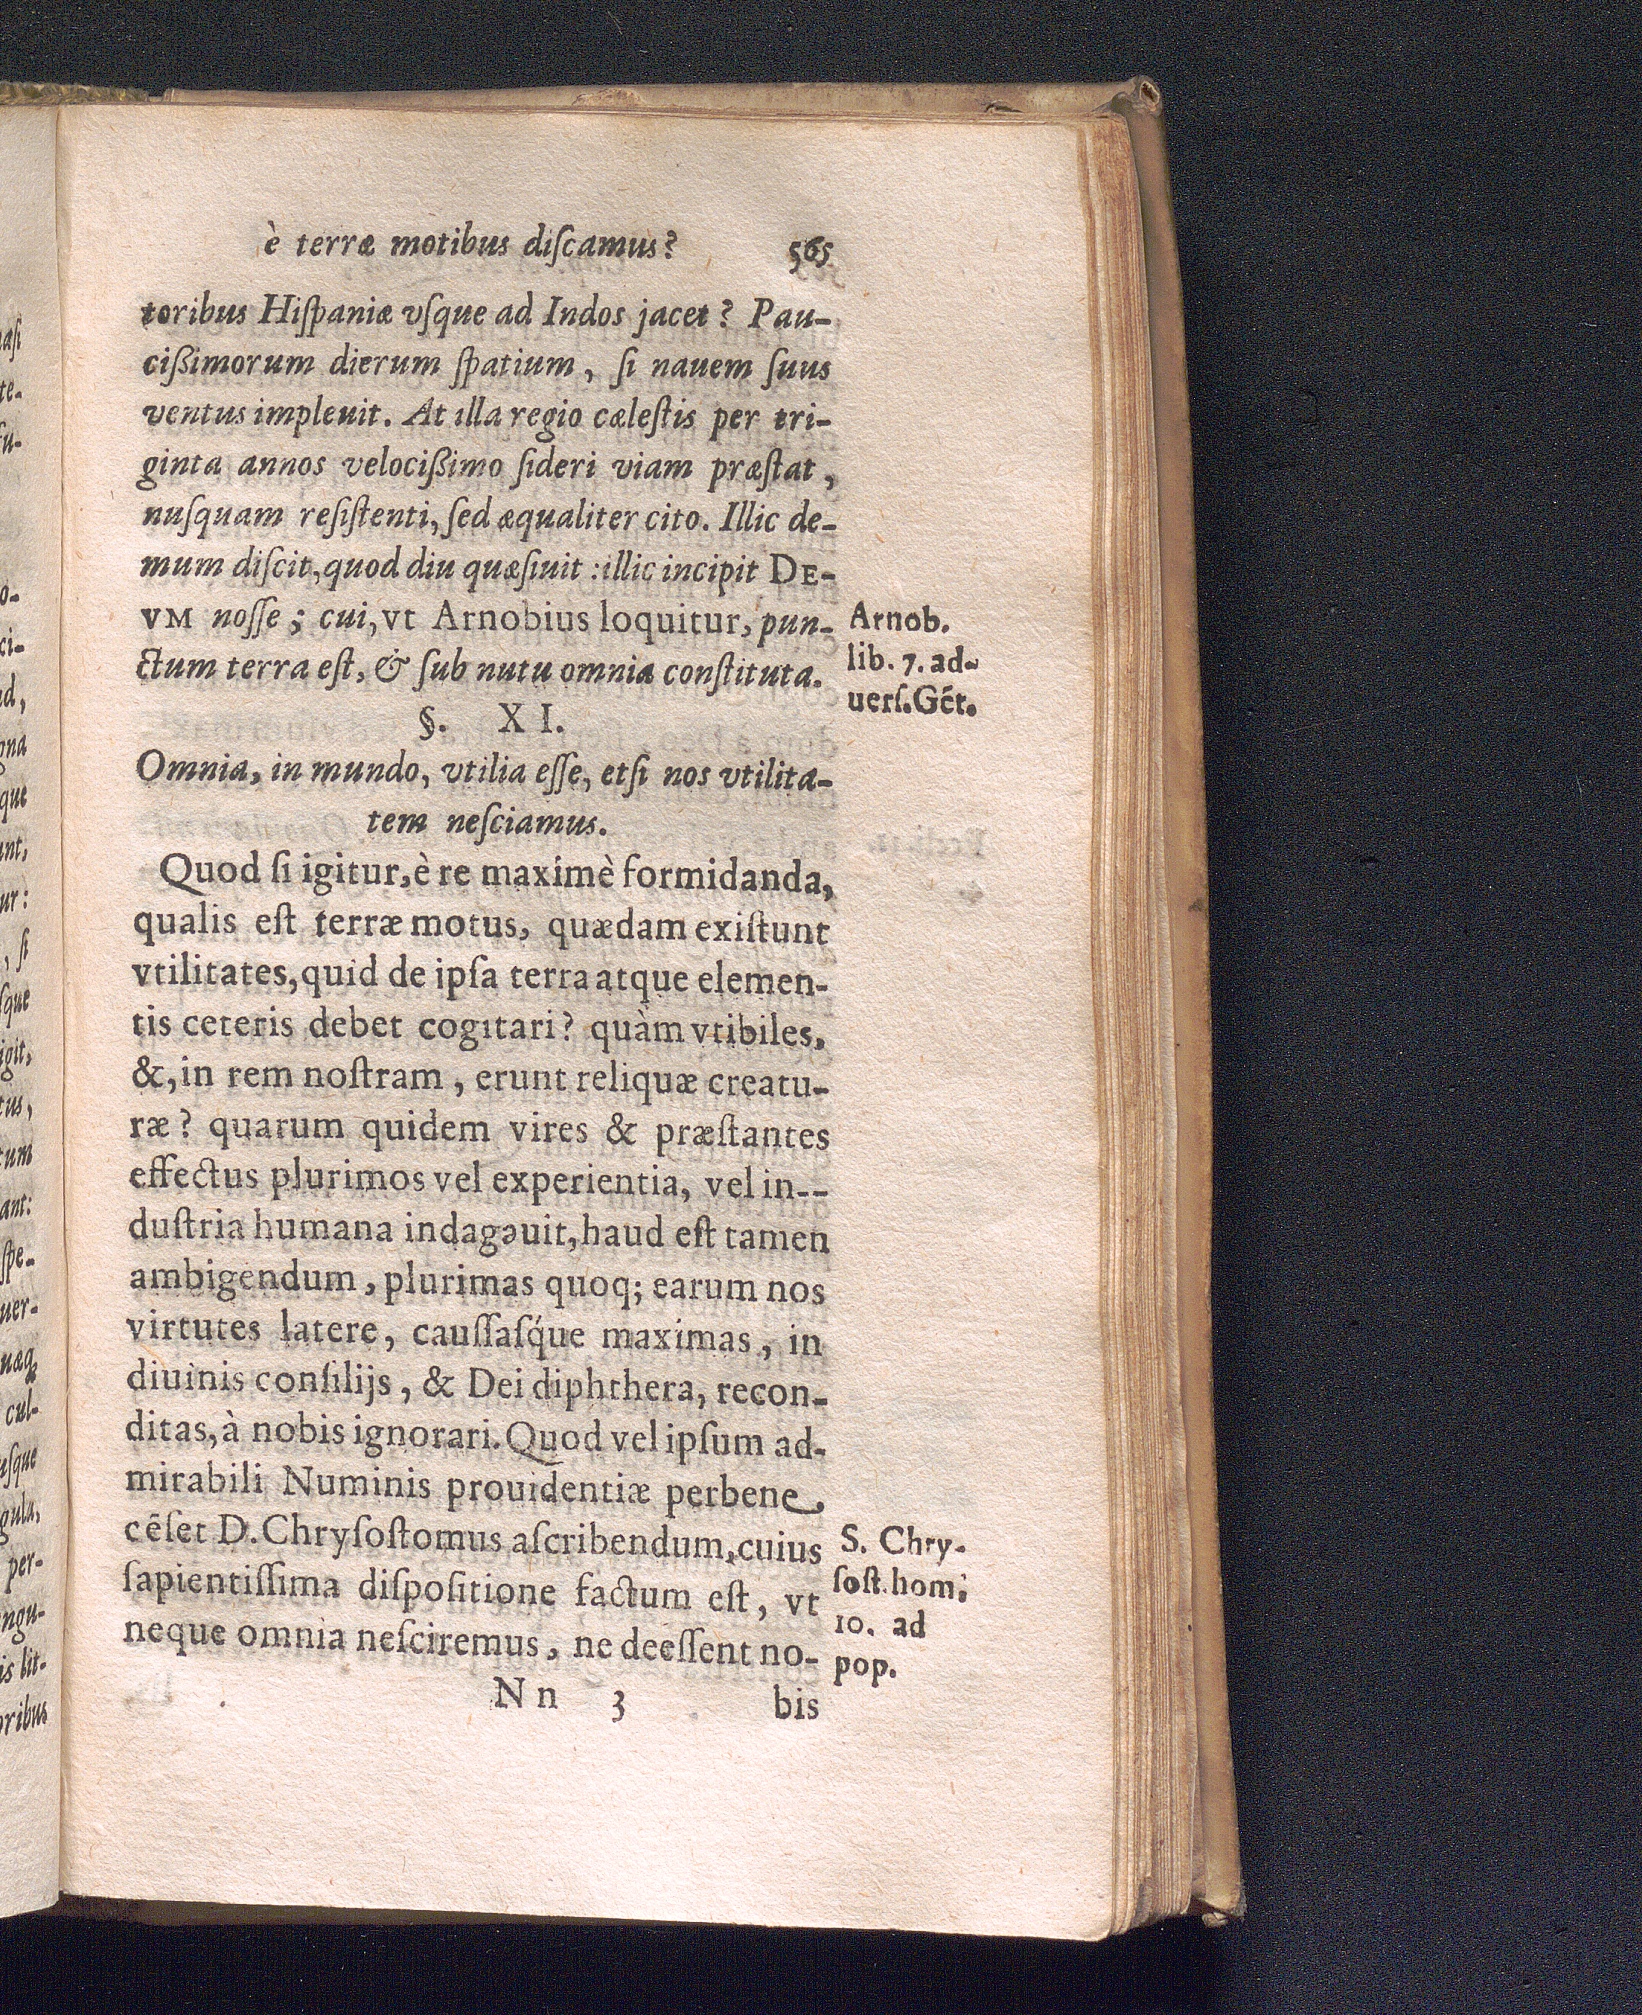 è terræ motibus diſcamus? 565
toribus Hiſpaniæ vſque ad Indos jacet? Pau-
cißimorum dierum ſpatium, ſi nauem ſuus
ventus impleuit. At illa regio cæleſtis per tri-
ginta annos velocißimo ſideri viam præſtat,
nuſquam reſiſtenti, ſed æqualiter cito. Illic de-
mum diſcit, quod diu quæſiuit: illic incipit DE-
VM noſſe; cui, vt Arnobius loquitur, pun-
ctum terra eſt, & ſub nutu omnia conſtituta.
Arnob.
lib. 7. ad-
uerſ. Gét.
§. XI.
Omnia, in mundo, vtilia eſſe, etſi nos vtilita-
tem neſciamus.
Quod ſi igitur, è re maximè formidanda,
qualis eſt terræ motus, quædam exiſtunt
vtilitates, quid de ipſa terra atque elemen-
tis ceteris debet cogitari? quàm vtibiles,
&, in rem noſtram, erunt reliquæ creatu-
ræ? quarum quidem vires & præſtantes
effectus plurimos vel experientia, vel in--
duſtria humana indagauit, haud eſt tamen
ambigendum, plurimas quoq; earum nos
virtutes latere, cauſſaſq́ue maximas, in
diuinis conſilijs, & Dei diphthera, recon-
ditas, à nobis ignorari. Quod vel ipſum ad-
mirabili Numinis prouidentiæ perbene
cēſet D. Chryſoſtomus aſcribendum, cuius
ſapientiſſima diſpoſitione factum eſt, vt
neque omnia neſciremus, ne deeſſent no-
S. Chry-
ſoſt. hom.
10. ad
pop.
Nn 3 bis